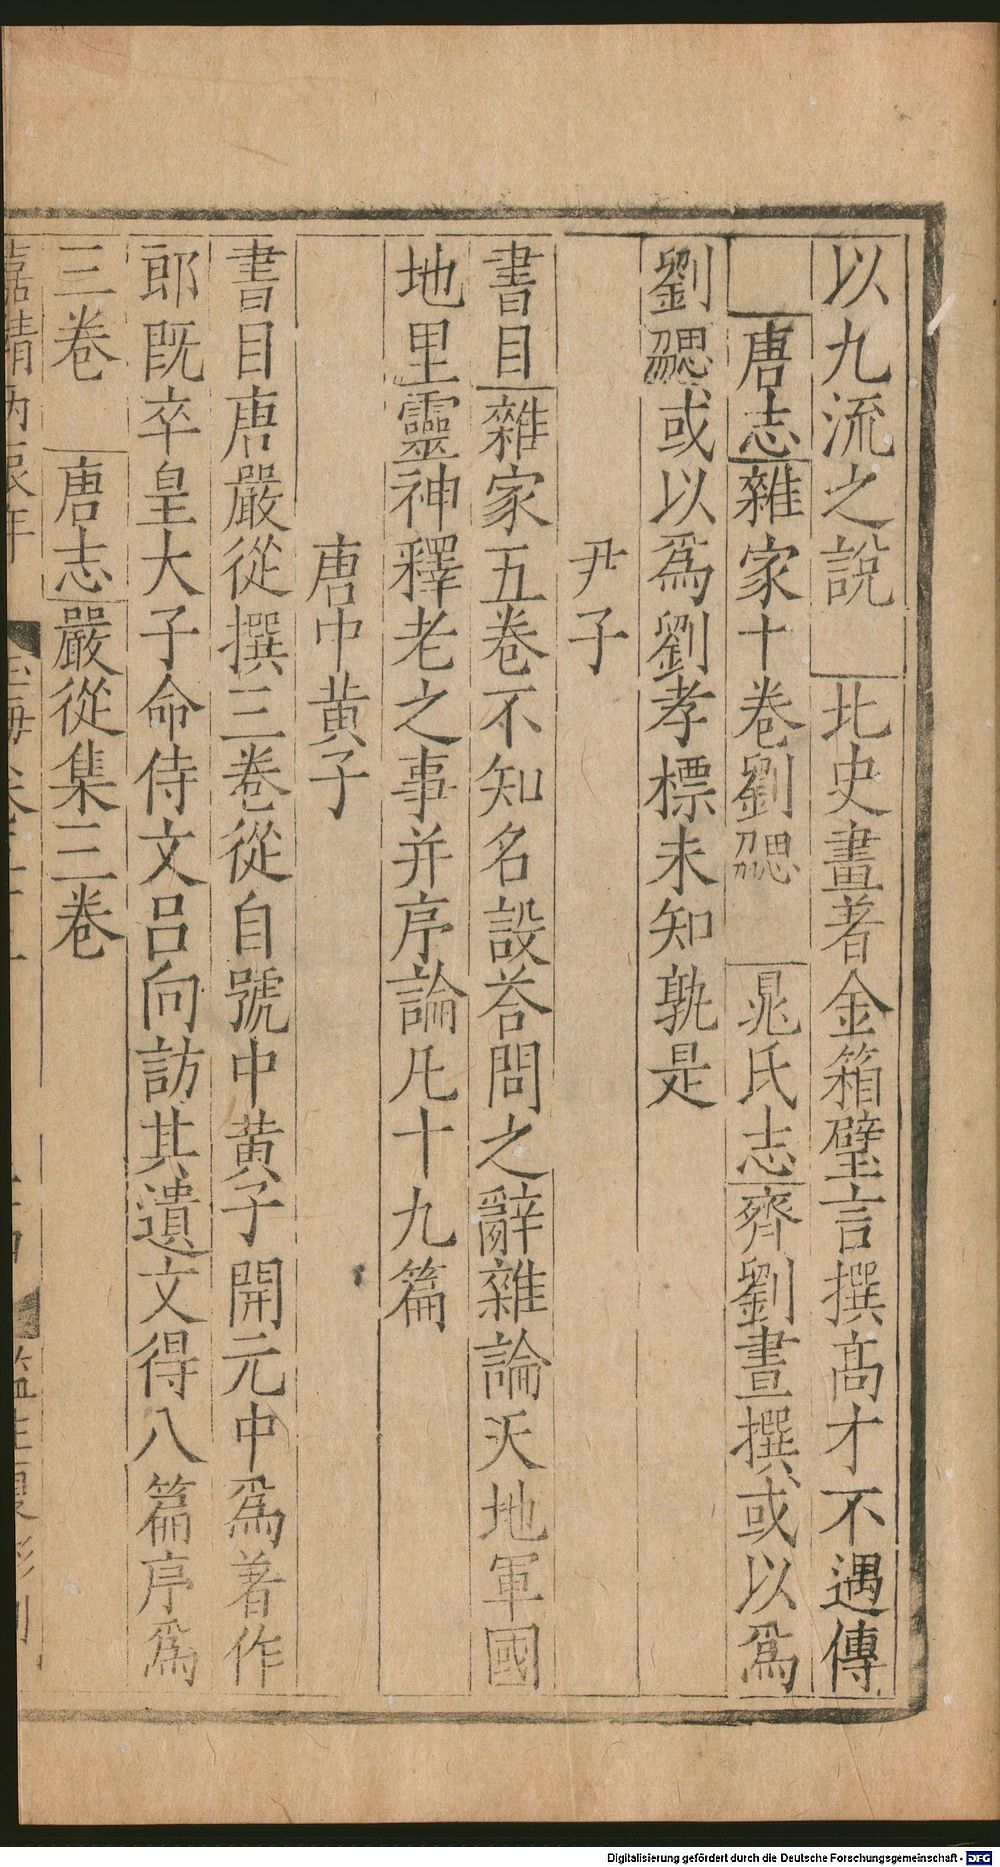 以九流之説　北史畫著金箱璧言撰髙才不遇傳
唐志雜家十卷劉勰　晁氏志齊劉晝撰或以爲
劉勰或以爲劉孝標未知孰是
尹子
書目雜家五卷不知名設荅問之辭雜論天地軍國
地里靈神釋老之事并序論凡十九篇
唐中黄子
書目唐嚴從撰三卷從自號中黄子開元中爲著作
郎既卒皇太子命侍文吕向訪其遺文得八篇序爲
三卷　唐志嚴從集三卷
嘉靖丙辰年
Digitalisierung gefördert durch die Deutsche Forschungsgemeinschaft - DFG